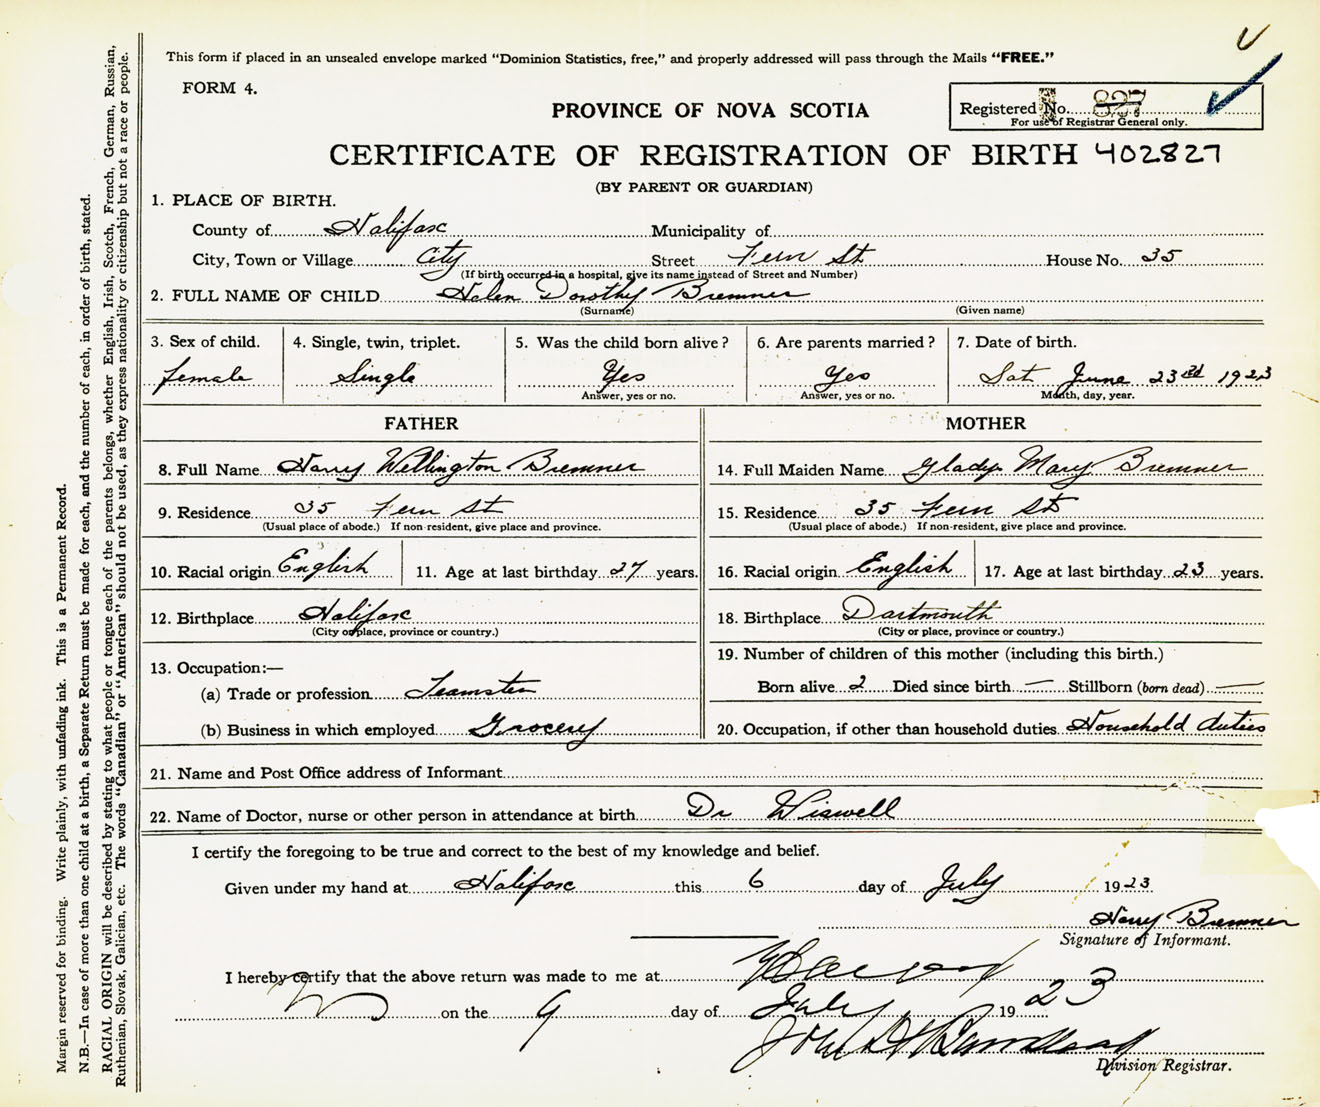 This form if placed in an unsealed envelope marked "Dominion Statistics, free," and properly addressed will pass through the Mails "FREE."
FORM 4.
Registered No. 827
For use of Registrar General only.
PROVINCE OF NOVA SCOTIA
CERTIFICATE OF REGISTRATION OF BIRTH 402827
(BY PARENT OR GUARDIAN)
1. PLACE OF BIRTH.
County of Halifax Municipality of
City, Town or Village City Street Fern St. House No. 35
(If birth occurred in a hospital, give its name instead of Street and Number)
2. FULL NAME OF CHILD Helen Dorothy Bremner
(Surname) (Given name)
3. Sex of child. 4. Single, twin, triplet. 5. Was the child born alive? 6. Are parents married? 7. Date of birth.
female Single Yes Yes Sat June 23rd 1923
Answer, yes or no. Answer, yes or no. Month, day, year.
FATHER MOTHER
8. Full Name Harry Wellington Bremner 14. Full Maiden Name Gladys Mary Bremner
9. Residence 35 Fern St 15. Residence 35 Fern St
(Usual place of abode.) If non-resident, give place and province. (Usual place of abode.) If non-resident, give place and province.
10. Racial origin English 11. Age at last birthday 27 years. 16. Racial origin English 17. Age at last birthday 23 years.
12. Birthplace Halifax 18. Birthplace Dartmouth
(City or place, province or country.) (City or place, province or country.)
13. Occupation:— 19. Number of children of this mother (including this birth.)
(a) Trade or profession Teamster Born alive 2 Died since birth — Stillborn (born dead) —
(b) Business in which employed Grocery 20. Occupation, if other than household duties Household duties
21. Name and Post Office address of Informant
22. Name of Doctor, nurse or other person in attendance at birth Dr Wiswell
I certify the foregoing to be true and correct to the best of my knowledge and belief.
Given under my hand at Halifax this 6 day of July 1923
Harry Bremner
Signature of Informant.
I hereby certify that the above return was made to me at
on the 9 day of July 1923
John
Division Registrar.
Margin reserved for binding. Write plainly, with unfading ink. This is a Permanent Record.
N.B.—In case of more than one child at a birth, a Separate Return must be made for each, and the number of each, in order of birth, stated.
RACIAL ORIGIN will be described by stating to what people or tongue each of the parents belongs, whether English, Irish, Scotch, French, German, Russian,
Ruthenian, Slovak, Galician, etc. The words "Canadian" or "American" should not be used, as they express nationality or citizenship but not a race or people.